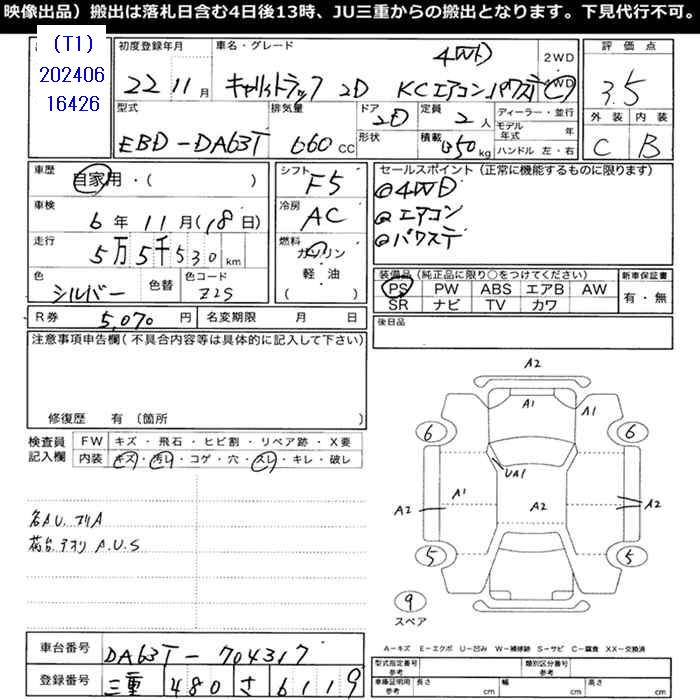 映像出品）搬出は落札日含む4日後13時、JU三重からの搬出となります。下見代行不可。
(T1)
202406
16426
初度登録年月
22 11 月
車名・グレード
4WD
キャリィトラック 2D KCエアコン.パワステ
2WD
4WD
評価点
3.5
外装 内装
C B
型式
EBD-DA63T
排気量
660 cc
ドア
2D
形状
定員
2 人
積載
350 kg
ディーラー・並行
モデル年式 年
ハンドル 左・右
車歴
自家用・( )
車検
6 年 11 月(18 日)
走行
5万5千530 km
色
シルバー
色替
色コード
Z2S
シフト
F5
冷房
AC
燃料
ガソリン
軽・油
( )
セールスポイント(正常に機能するものに限ります)
@4WD
@エアコン
@パワステ
装備品(純正品に限り○をつけてください)
PS PW ABS エアB AW
SR ナビ TV カワ
新車保証書
有・無
R券 5,070 円
名変期限 月 日
後日品
注意事項申告欄(不具合内容等は具体的に記入して下さい)
修復歴 有 〔箇所 〕
検査員記入欄
FW キズ・飛石・ヒビ割・リペア跡・X要
内装 キズ・汚レ・コゲ・穴・スレ・キレ・破レ
各AU.エクリA
荷台.アオリ A.U.S
A2
A1
A1
6
6
UA1
A2
A1
A2
A2
5
5
9
スペア
A－キズ E－エクボ U－凹み W－補修跡 S－サビ C－腐食 XX－交換済
車台番号 DA63T-704317
登録番号 三重 480 さ 6119
型式指定番号 参考
類別区分番号 参考
車庫証明用 参考
長さ cm
幅 cm
高さ cm